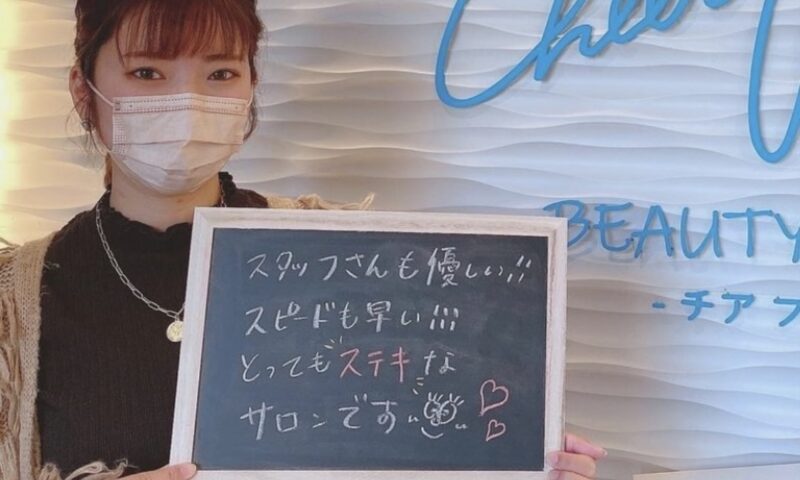 Cheer
BEAUTY
-チア フ
スタッフさんも優しい!!
スピードも早い!!!
とってもステキな
サロンです